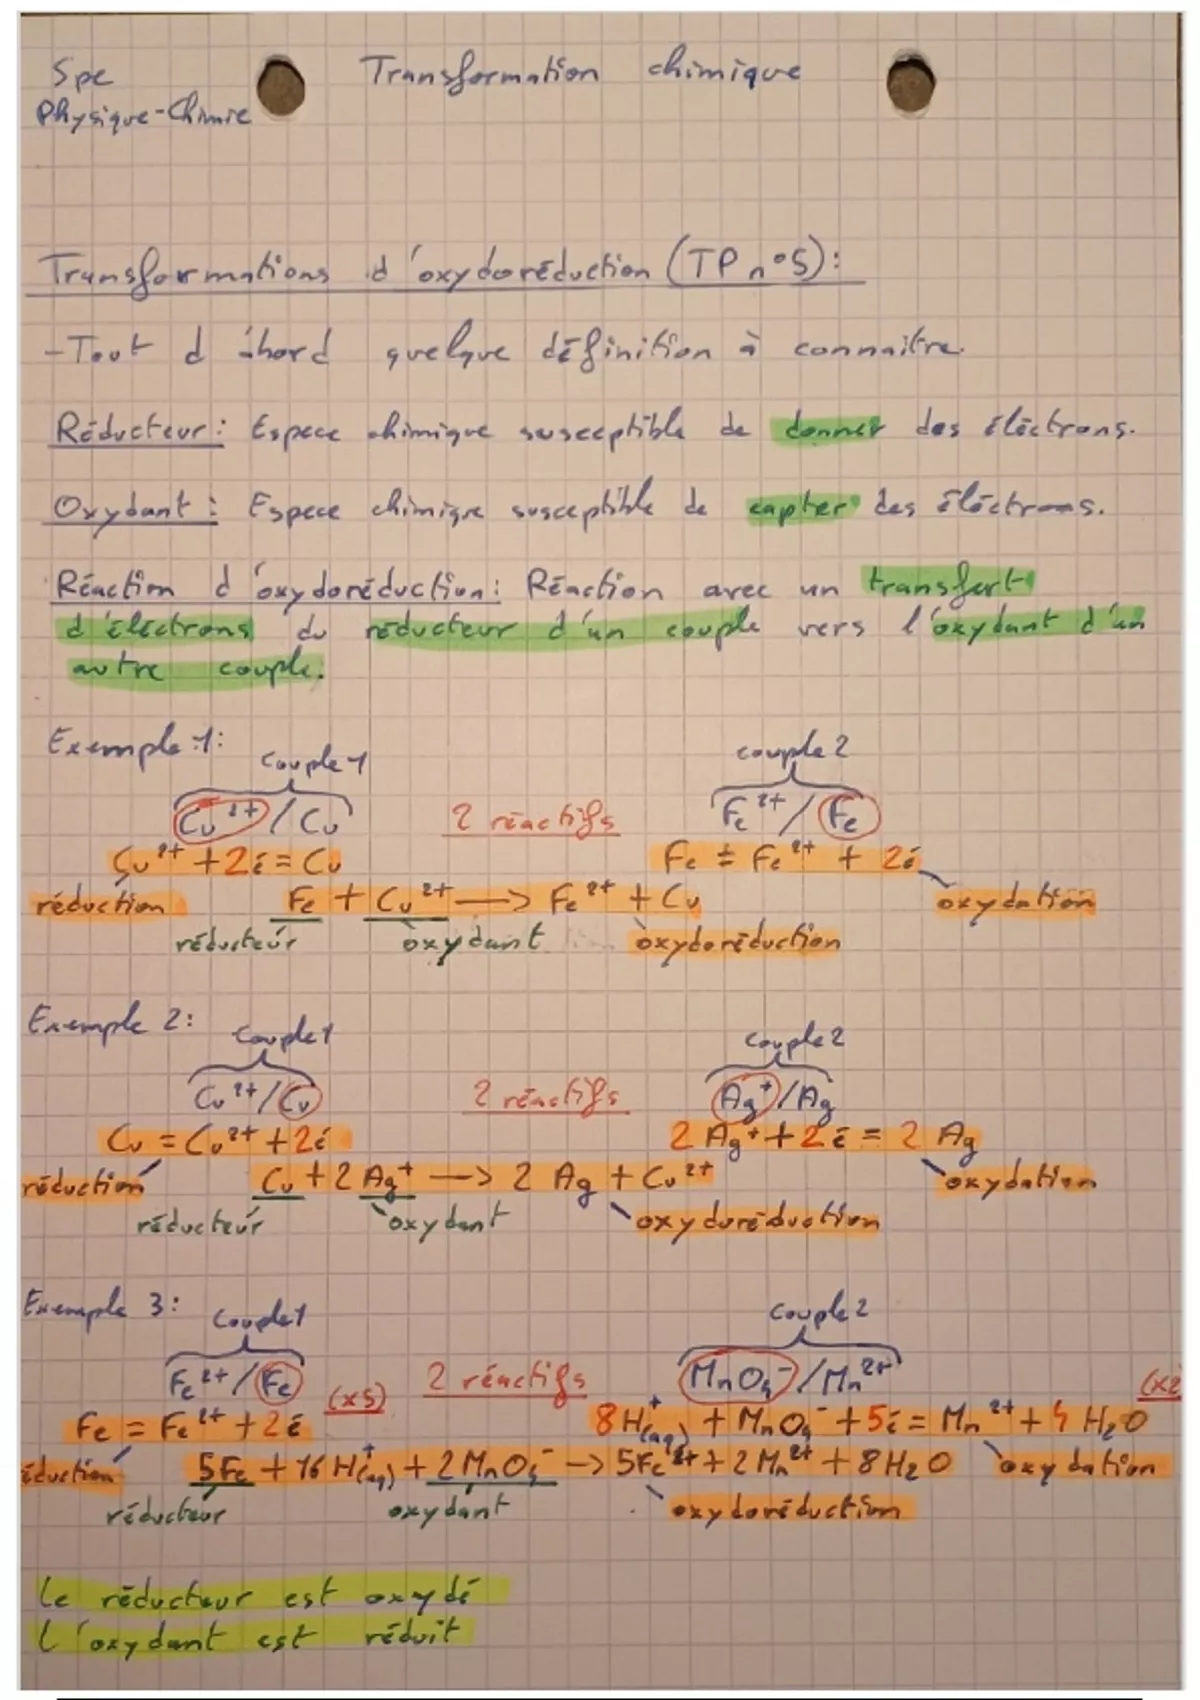 Spe
Transformation chimique
Physique-Chimie
Transformations d'oxydoréduction (TP n°5):
-Tout d'abord quelque définition à connaitre.
Réducteur: Espece chimique susceptible de donner des éléctrons.
Oxydant: Espece chimique susceptible de capter des éléctrons.
Réaction d'oxydoréduction: Réaction avec un transfert
d'éléctrons du réducteur d'un couple vers l'oxydant d'un
autre couple.
Exemple 1:
couple 1
couple 2
Cu²⁺/Cu 2 réactifs Fe²⁺/Fe
Cu²⁺ + 2é = Cu Fe = Fe²⁺ + 2é
réduction Fe + Cu²⁺ —> Fe²⁺ + Cu oxydation
réducteur oxydant oxydoréduction
Exemple 2:
couple 1
couple 2
Cu²⁺/Cu 2 réactifs Ag⁺/Ag
Cu = Cu²⁺ + 2é 2 Ag⁺ + 2é = 2 Ag
réduction Cu + 2 Ag⁺ —> 2 Ag + Cu²⁺ oxydation
réducteur oxydant oxydoréduction
Exemple 3:
couple 1
couple 2
Fe²⁺/Fe (x5) 2 réactifs MnO₄⁻/Mn²⁺ (x2
Fe = Fe²⁺ + 2é 8H⁺(aq) + MnO₄⁻ + 5é = Mn²⁺ + 4 H₂O
éduction 5Fe + 16 H⁺(aq) + 2MnO₄⁻ —> 5Fe²⁺ + 2Mn²⁺ + 8H₂O oxydation
réducteur oxydant oxydoréduction
Le réducteur est oxydé
L'oxydant est réduit